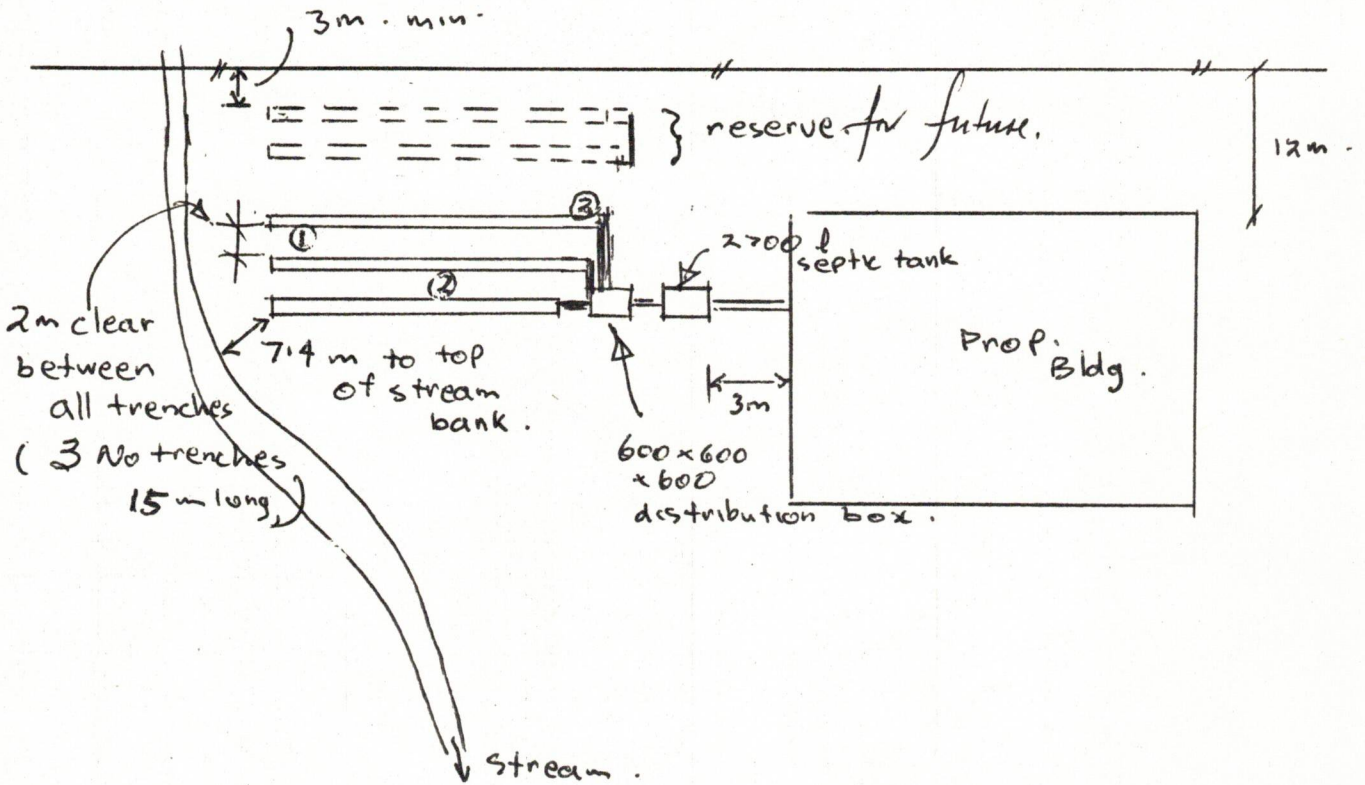 3m. min.
reserve for future.
12m.
①
②
2700 l
septic tank
2m clear
between
all trenches
( 3 No trenches
15 m long )
7.4 m to top
of stream
bank.
3m
600 x 600
x 600
distribution box.
Prop.
Bldg.
stream.